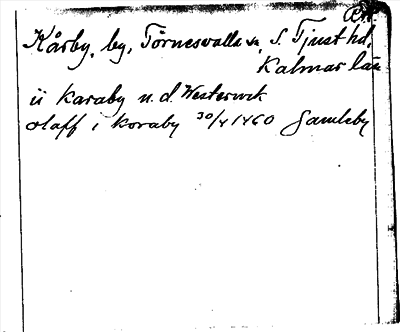 Kårby, by, Törnesvalla sn, S. Tjust hd,
Kalmar län
ii karaby n.d. Westerwik
olaff i koraby 30/4 1460 Gamleby